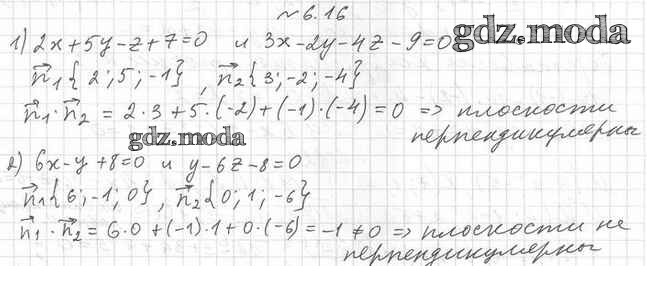 №6.16
1) 2x+5y-z+7=0 и 3x-2y-4z-9=0 gdz.moda
n⃗₁{2;5;-1}, n⃗₂{3;-2;-4}
n⃗₁·n⃗₂ = 2·3+5·(-2)+(-1)·(-4)=0 => плоскости
перпендикулярны
gdz.moda
2) 6x-y+8=0 и y-6z-8=0
n⃗₁{6;-1;0}, n⃗₂{0;1;-6}
n⃗₁·n⃗₂=6·0+(-1)·1+0·(-6)=-1≠0 => плоскости не
перпендикулярны